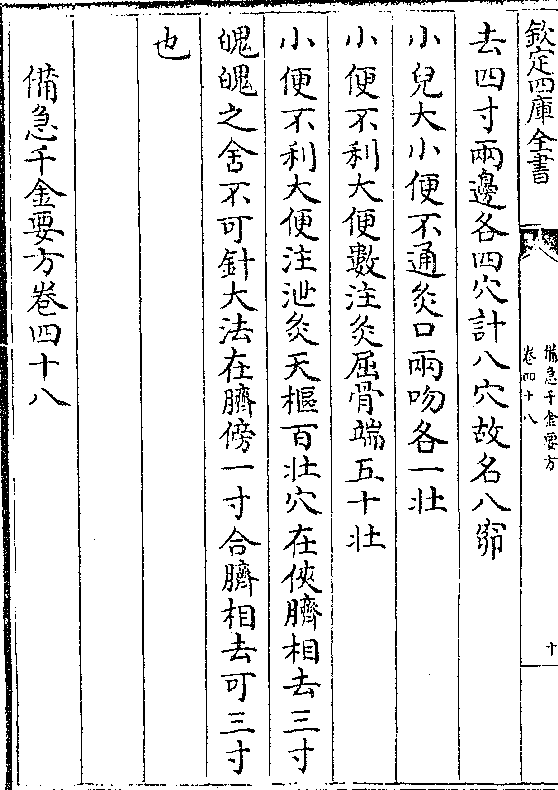 欽定四庫全書
備急千金要方
卷四十八
十
去四寸兩邊各四穴計八穴故名八窌
小兒大小便不通灸口兩吻各一壯
小便不利大便數注灸屈骨端五十壯
小便不利大便注泄灸天樞百壯穴在俠臍相去三寸
魄魄之舍不可針大法在臍傍一寸合臍相去可三寸
也
備急千金要方卷四十八